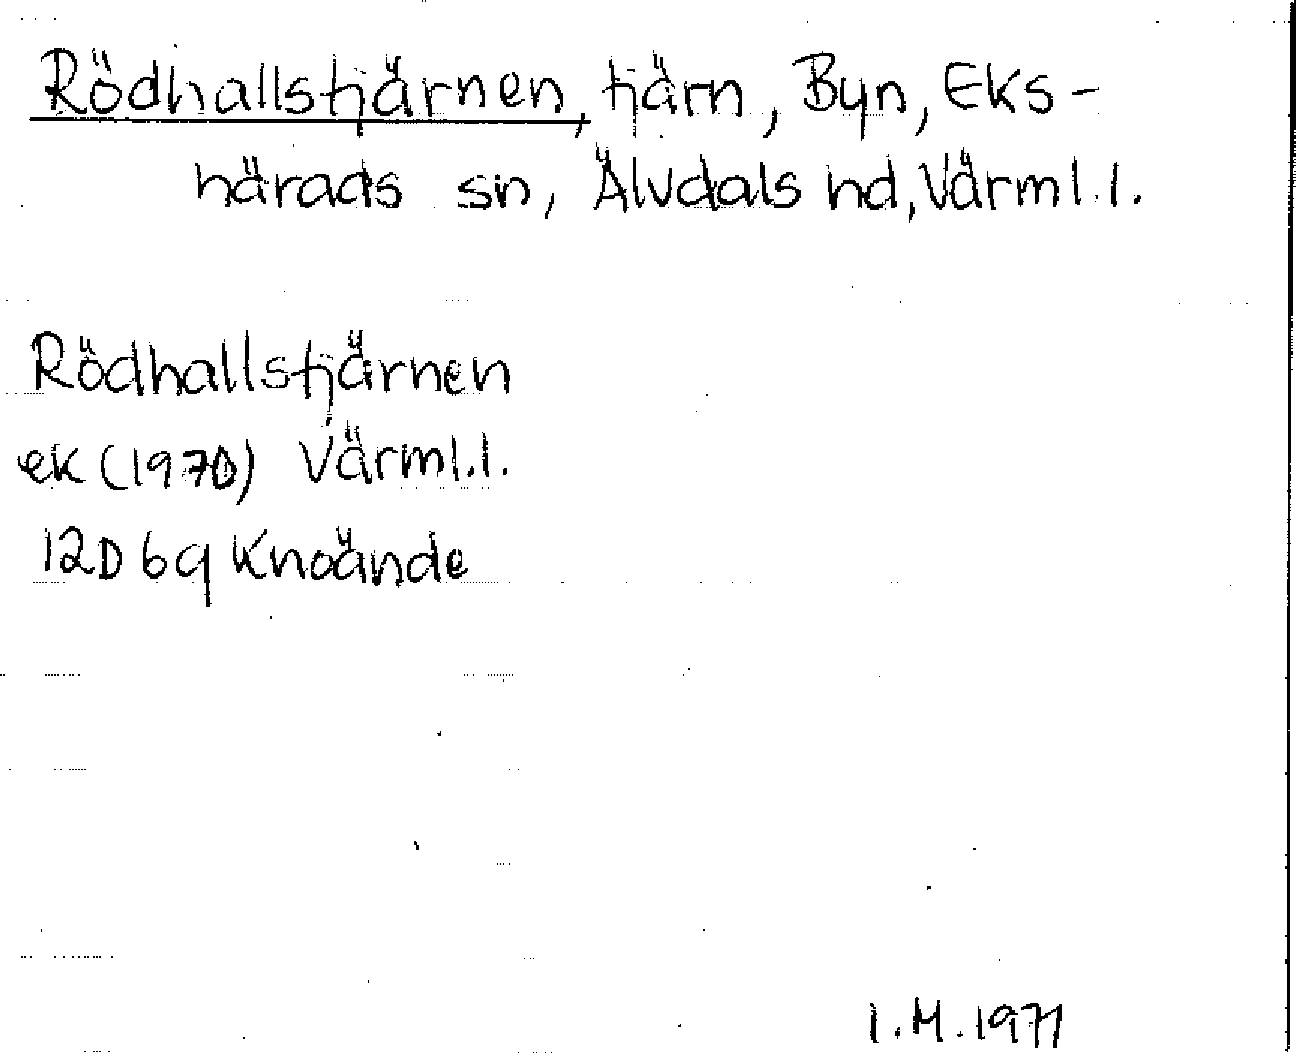 Rödhallstjärnen, tjärn, Byn, Eks-
härads sn, Älvdals hd, Värml.l.
Rödhallstjärnen
ek (1970) Värml.l.
12D 6q Knoände
I.M. 1971